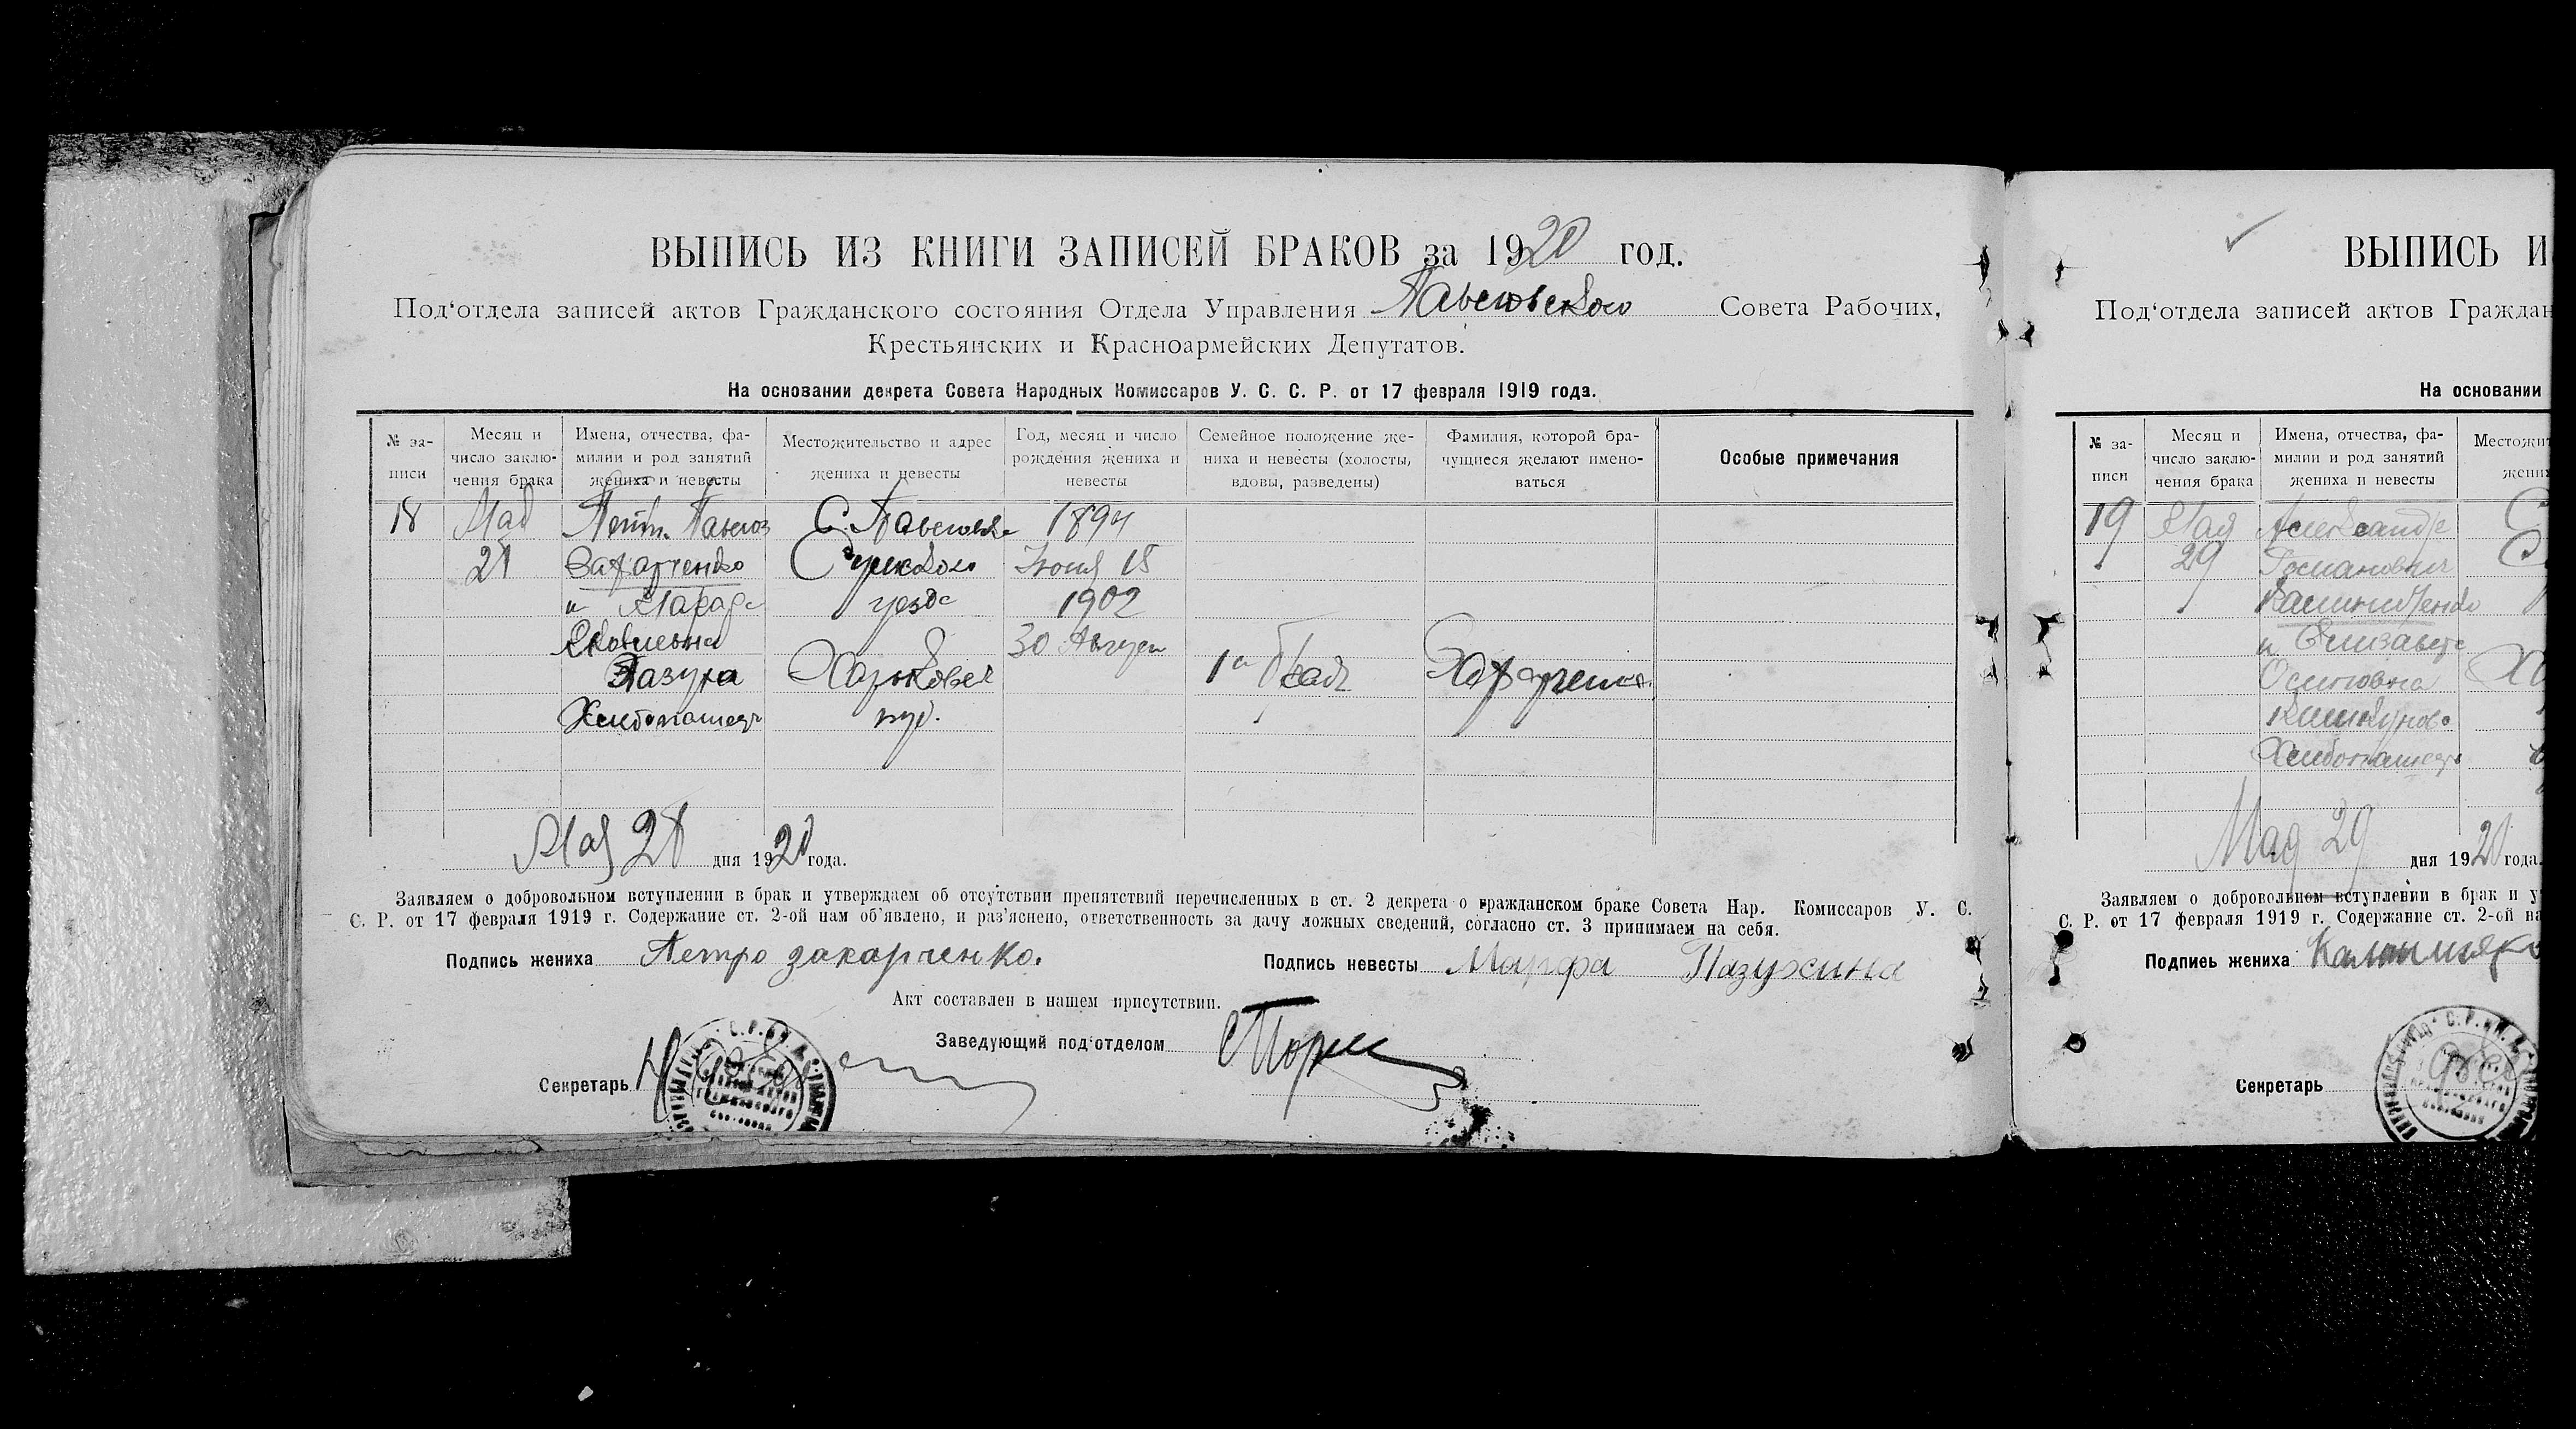 ВЫПИСЬ ИЗ КНИГИ ЗАПИСЕЙ БРАКОВ за 1920 год.
Под‘отдела записей актов Гражданского состояния Отдела Управления Павловского Совета Рабочих,
Крестьянских и Красноармейских Депутатов.
На основании декрета Совета Народных Комиссаров У. С. С. Р. от 17 февраля 1919 года.
№ за-
писи
Месяц и
число заклю-
чения брака
Имена, отчества, фа-
милии и род занятий
жениха и невесты
Местожительство и адрес
жениха и невесты
Год, месяц и число
рождения жениха и
невесты
Семейное положение же-
ниха и невесты (холосты,
вдовы, разведены)
Фамилия, которой бра-
чущиеся желают имено-
ваться
Особые примечания
18 Мая Петр Павлов С. Павловка 1894
Захарченко Сумского Июня 15
и уезда 1902
Яковлевна 30 Август
Харьковск 1й брак Захарченко
Хлебопашец губ.
Мая 28 дня 1920 года.
Заявляем о добровольном вступлении в брак и утверждаем об отсутствии препятствий перечисленных в ст. 2 декрета о гражданском браке Совета Нар. Комиссаров У. С.
С. Р. от 17 февраля 1919 г. Содержание ст. 2-ой нам об‘явлено, и раз‘яснено, ответственность за дачу ложных сведений, согласно ст. 3 принимаем на себя.
Подпись жениха Петро Захарченко.
Подпись невесты Марфа Пазухина
Акт составлен в нашем присутствии.
Заведующий под‘отделом
Секретарь
ВЫПИСЬ И
Под‘отдела записей актов Граждан
На основании
№ за-
писи
Месяц и
число заклю-
чения брака
Имена, отчества, фа-
милии и род занятий
жениха и невесты
Местожит
жених
19 Мая Александр
29
и Елизавета
Осиповна
Хлебопашец
Мая 29 дня 1920 года.
Заявляем о добровольном вступлении в брак и у
С. Р. от 17 февраля 1919 г. Содержание ст. 2-ой на
Подпись жениха
Секретарь